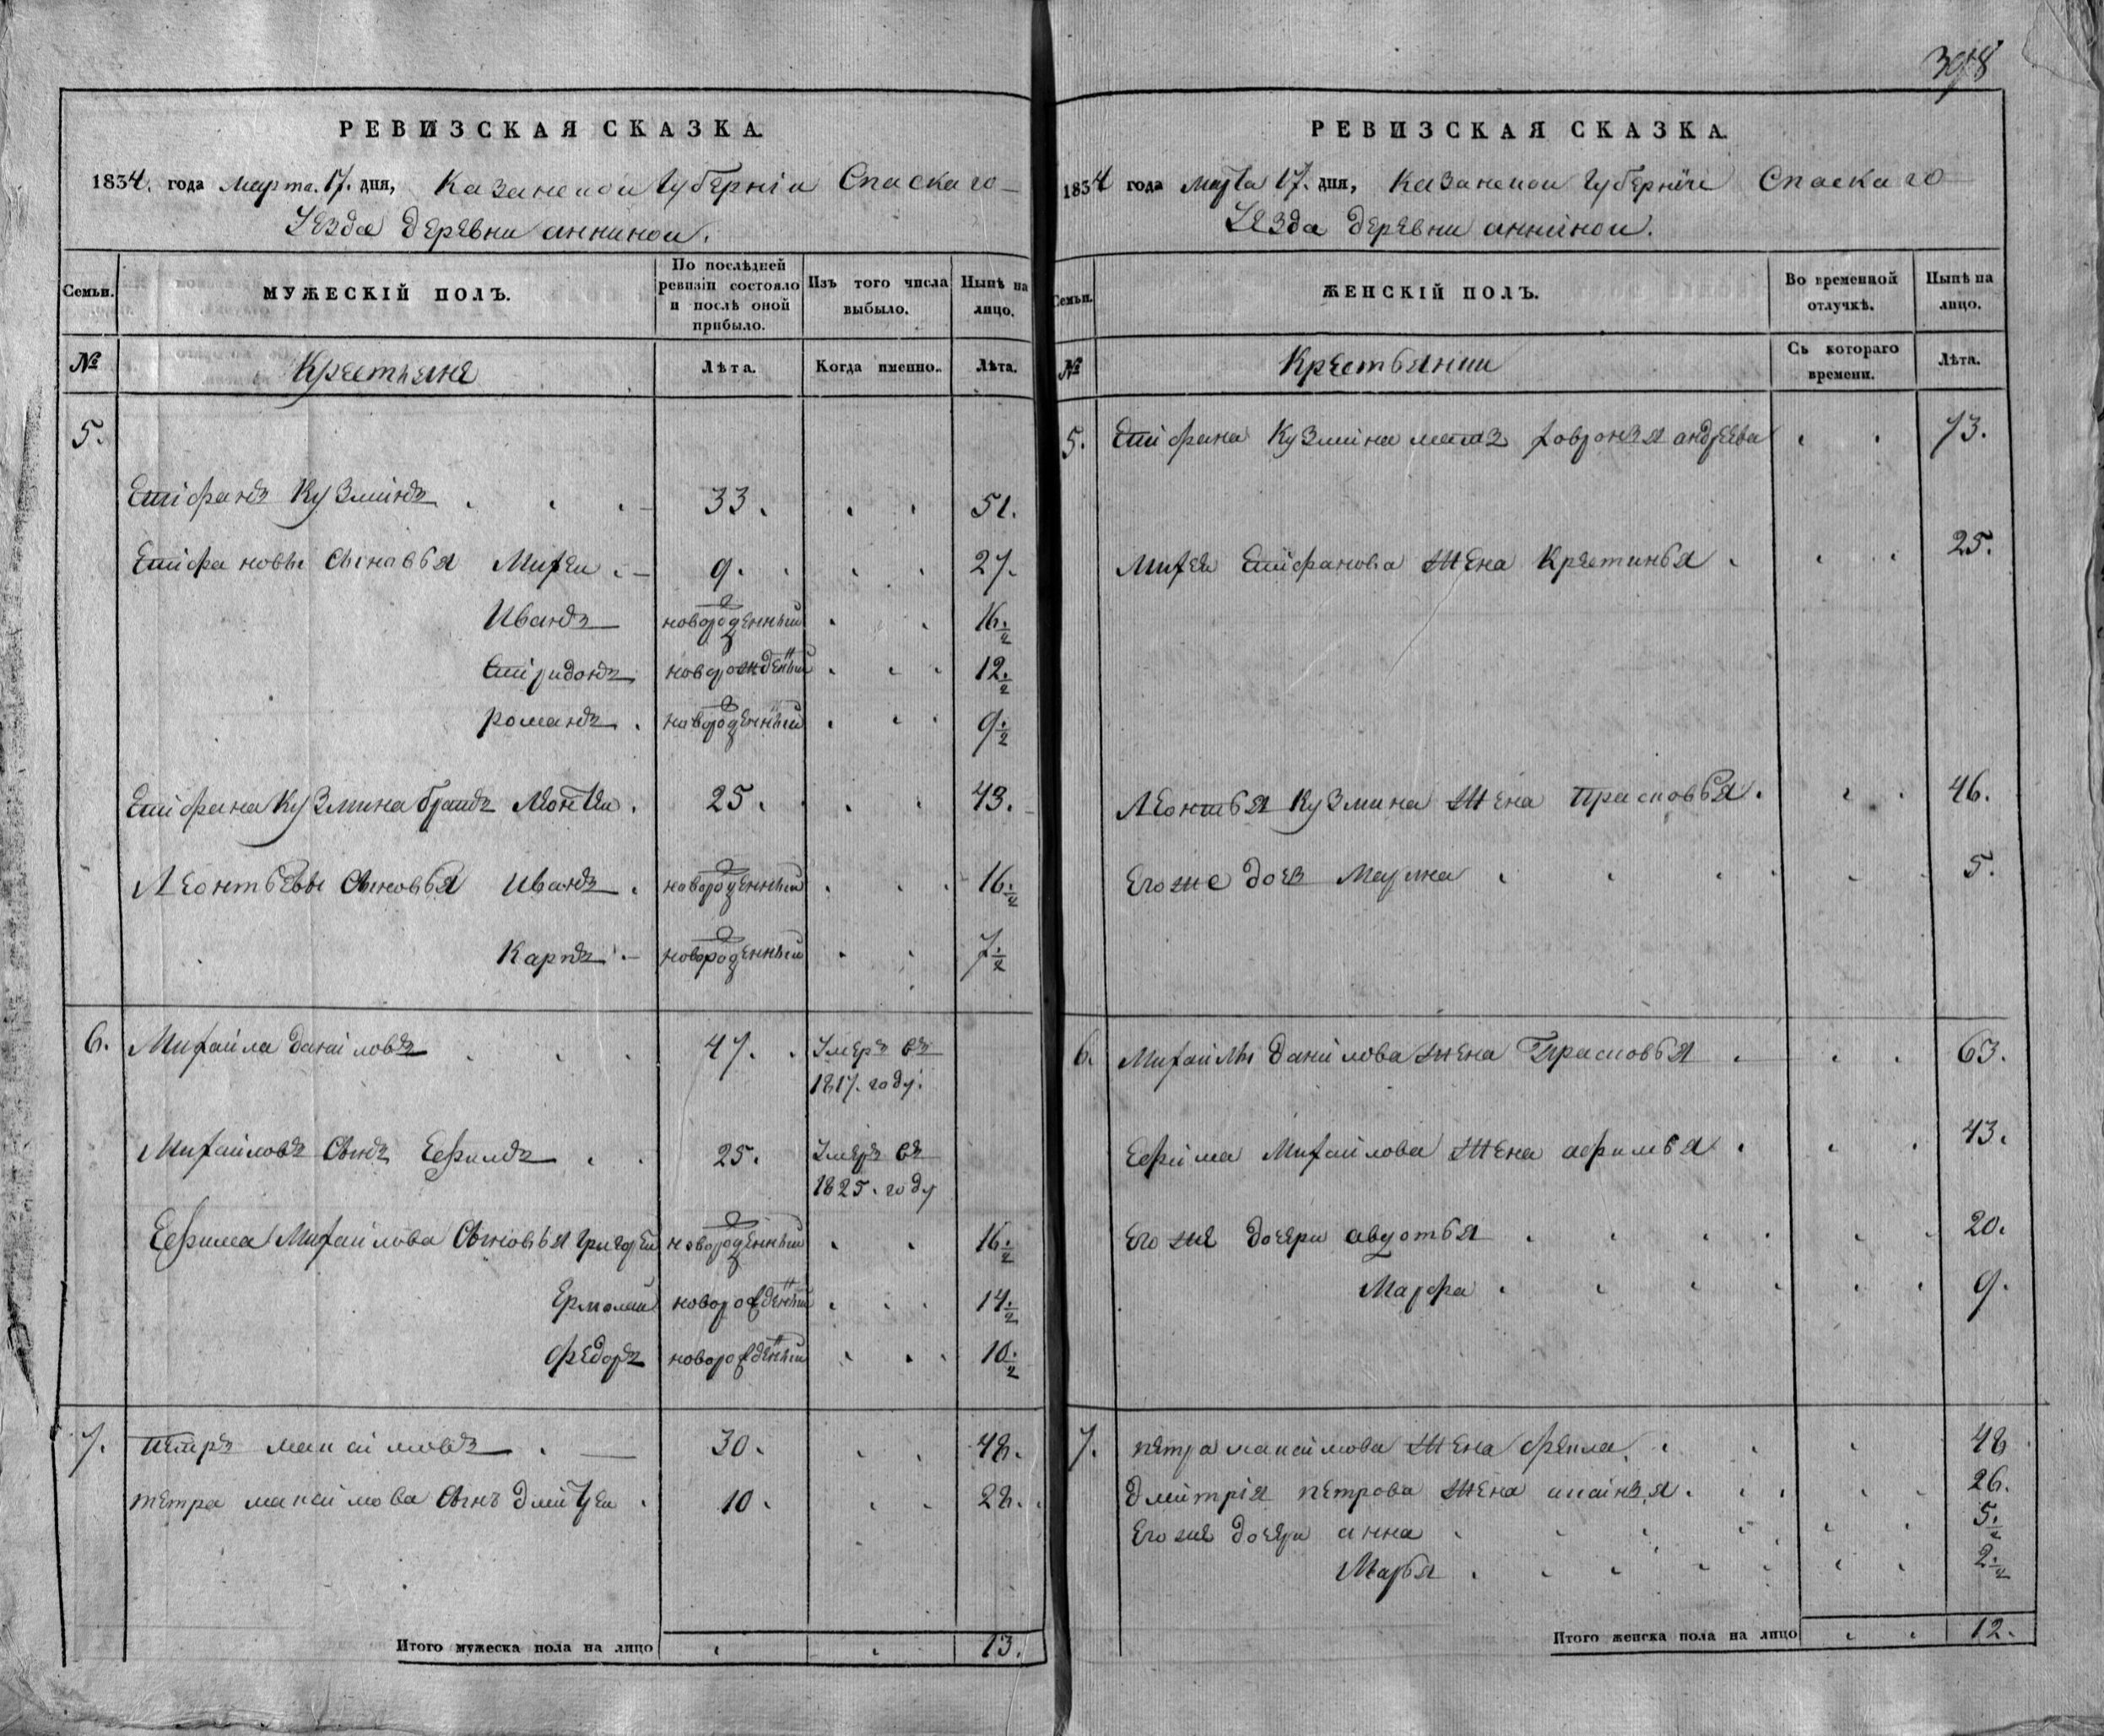 398
РЕВИЗСКАЯ СКАЗКА.
1834. года Марта. 17. дня, Казанской Губерніи Спаскаго
Уезда деревни аннинои.
Семьи.
МУЖЕСКІЙ ПОЛЪ.
По послѣдней ревизіи состояло и послѣ оной прибыло.
Изъ того числа выбыло.
Нынѣ на лицо.
№
Крестьяне
Лѣта.
Когда именно.
Лѣта.
5.
Епифанъ Кузминъ 33. 51.
Епифановы Сыновья Михеи 9. 27.
Иванъ новорожденныи 16 1/2
Спиридонъ новорожденныи 12 1/2
романъ новорожденныи 9 1/2
Епифана Кузмина братъ Леонтеи 25. 43.
Леонтьевы Сыновья иванъ новорожденныи 16 1/2
Карпъ новорожденныи 7 1/2
6. Михаила даниловъ 47. Умеръ въ
1817. году.
Михаиловъ Сынъ Ефимъ 25. Умеръ въ
1825. году
Ефима Михаилова Сыновья григореи новорожденныи 16 1/2
Ермолаи новорожденныи 14 1/2
федоръ новорожденныи 10 1/2
7. петръ максимовъ 30. 48.
петра максимова Сынъ дмитреи 10. 28.
Итого мужеска пола на лицо 13.
РЕВИЗСКАЯ СКАЗКА.
1834 года Марта 17. дня, Казанской Губерніи Спаскаго
Уезда деревни аннинои.
Семьи.
ЖЕНСКІЙ ПОЛЪ.
Во временной отлучкѣ.
Нынѣ на лицо.
№
Крестьянки
Съ котораго времени.
Лѣта.
5. Епифана Кузмина мать ховронъя андреева 73.
Михея Епифанова жена Крестинья 25.
Леонтья Кузмина жена прасковья 46.
Егоже дочь Марина 5.
6. Михаилы данилова жена Прасковья 63.
Ефима Михаилова жена афимья 43.
Его же дочери авдотья 20.
Марфа 9.
7. петра максимова жена фекла 48
дмитрія петрова жена аксинъя 26.
Его же дочери анна 5 1/2
Марья 2 1/2
Итого женска пола на лицо 12.